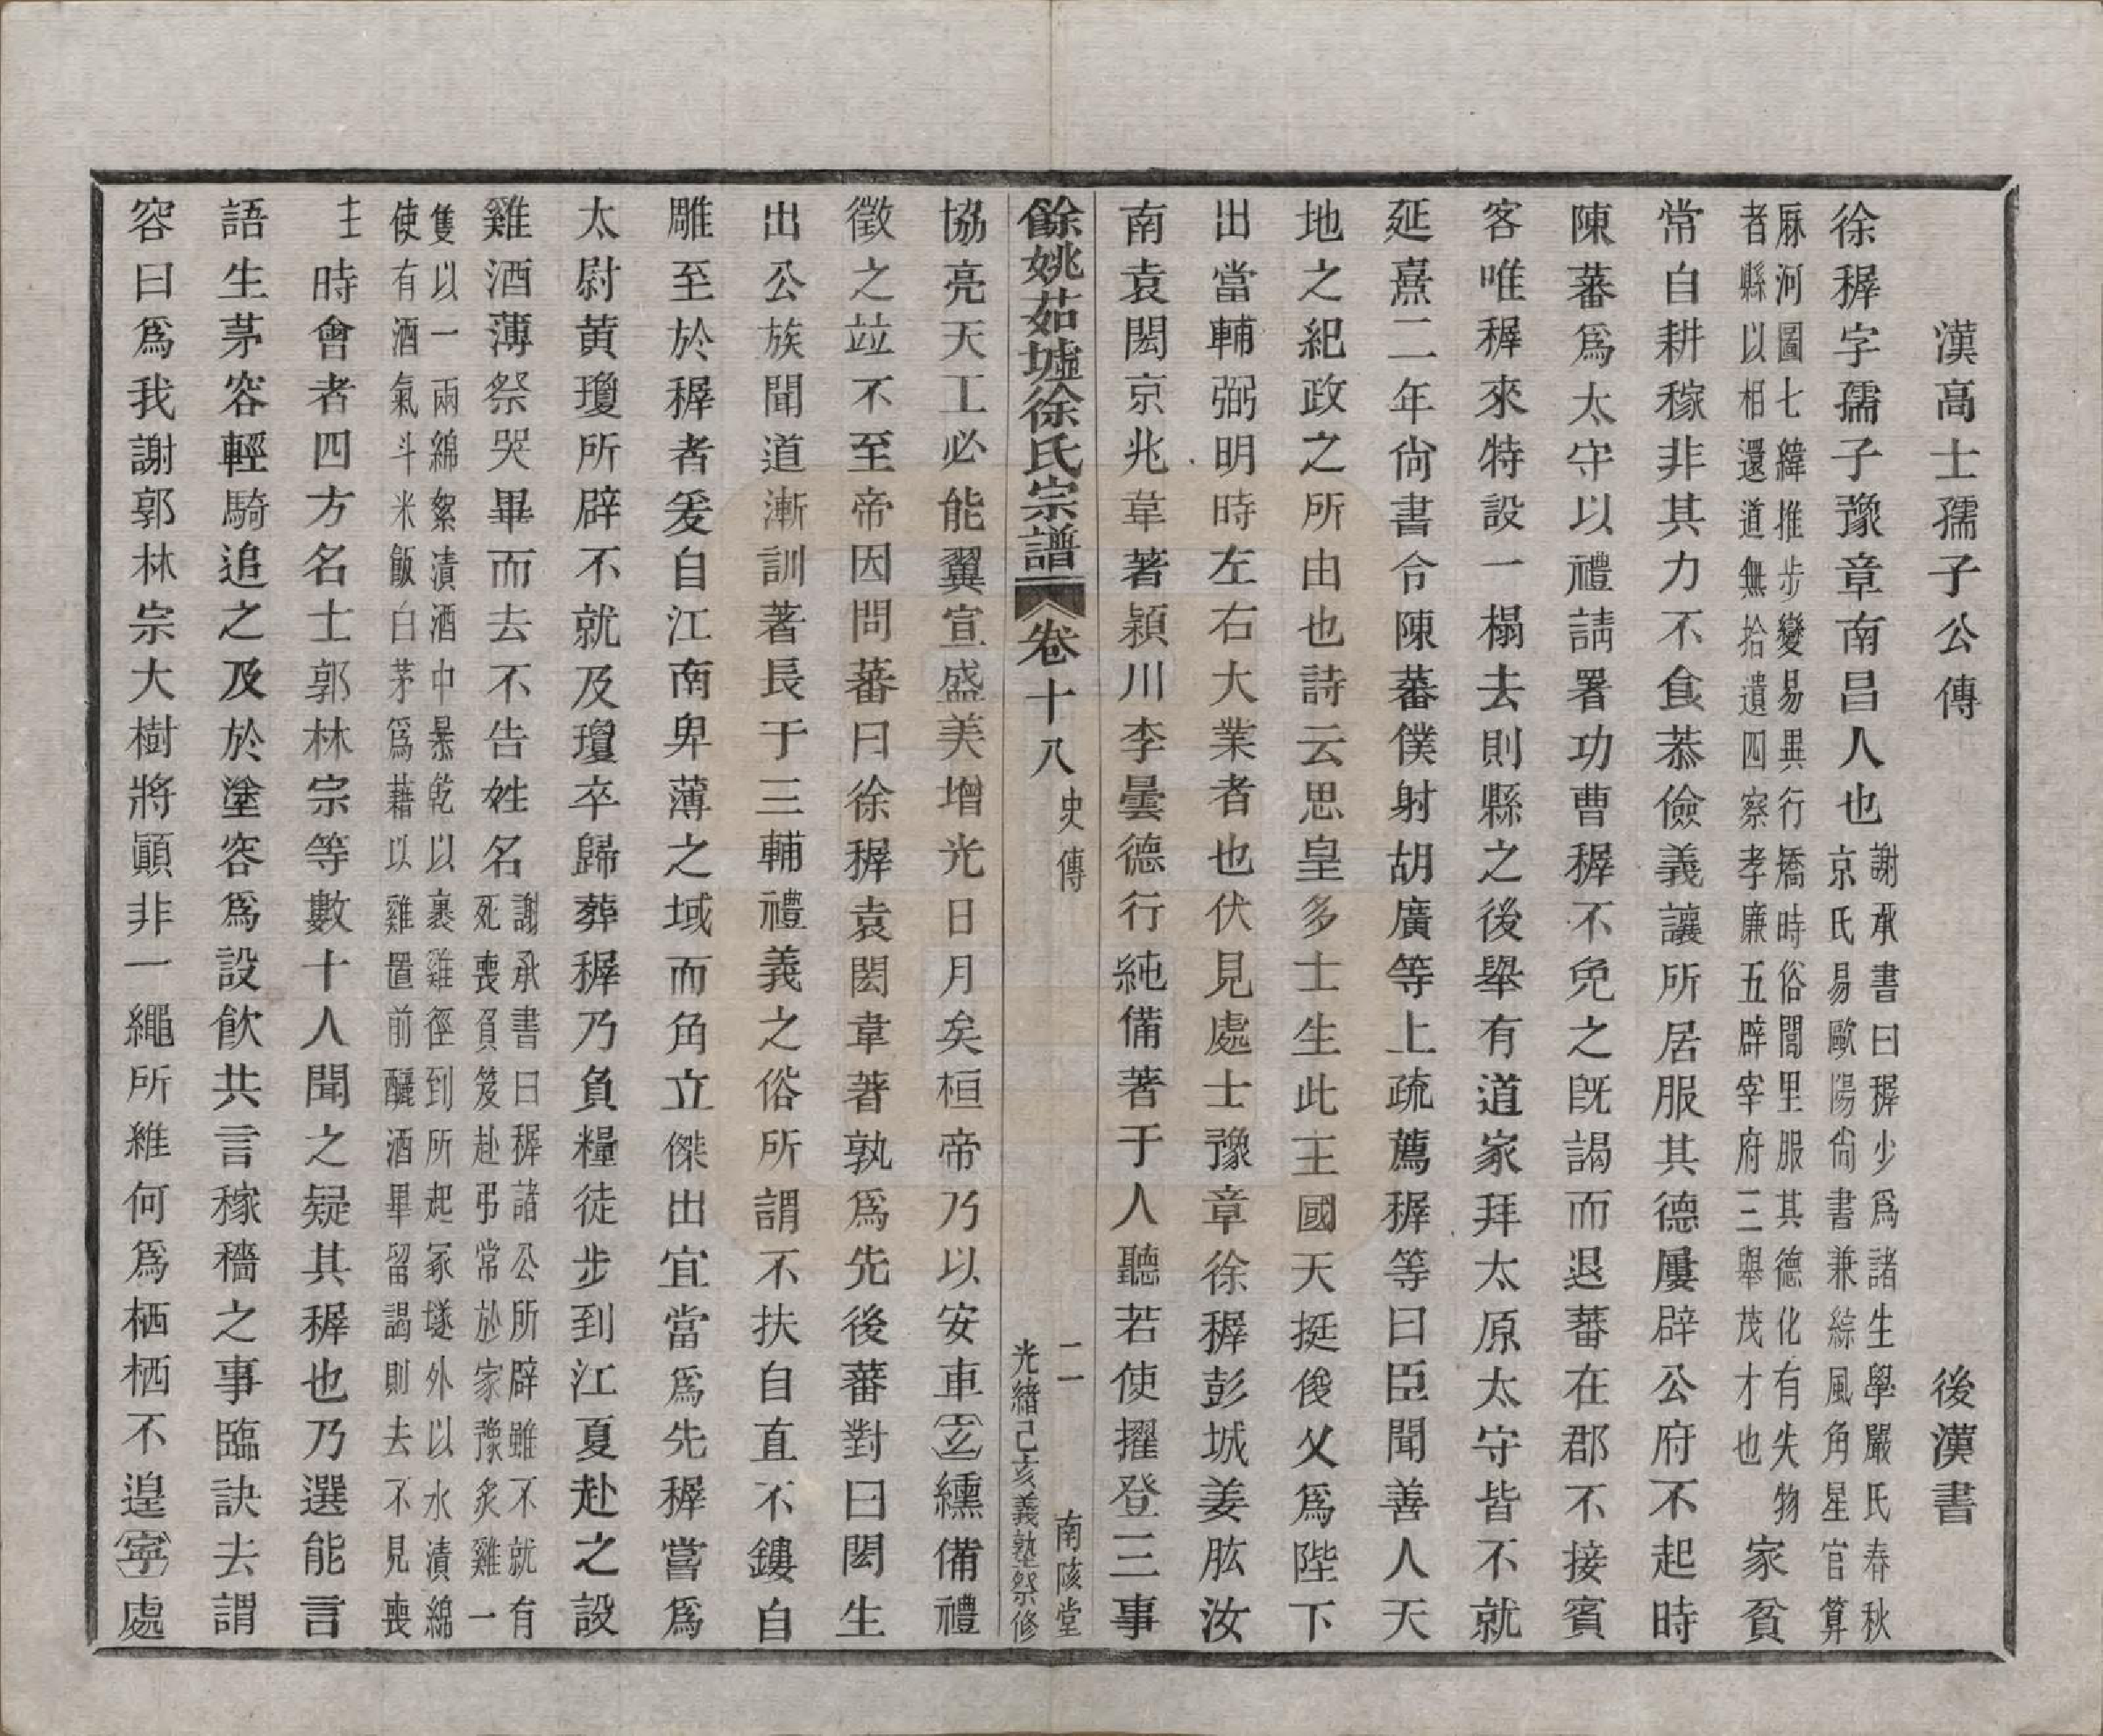 漢高士孺子公傳　後漢書
徐穉字孺子豫章南昌人也謝承書曰穉少爲諸生學嚴氏春秋京氏易歐陽尙書兼綜風角星官算
麻河圖七緯推步變易異行矯時俗閭里服其德化有失物者縣以相還道無拾遺四察孝廉五辟宰府三舉茂才也家貧
常自耕稼非其力不食恭儉義讓所居服其德屢辟公府不起時
陳蕃爲太守以禮請署功曹穉不免之旣謁而退蕃在郡不接賓
客唯穉來特設一榻去則縣之後舉有道家拜太原太守皆不就
延熹二年尙書令陳蕃僕射胡廣等上疏薦穉等曰臣聞善人天
地之紀政之所由也詩云思皇多士生此王國天挺俊乂爲陛下
出當輔弼明時左右大業者也伏見處士豫章徐穉彭城姜肱汝
南袁閎京兆韋著潁川李曇德行純備著于人聽若使擢登三事
餘姚茹墟徐氏宗譜　卷十八　史傳　二　南陔堂　光緒己亥義塾祭修
協亮天工必能翼宣盛美增光日月矣桓帝乃以安車玄纁備禮
徵之竝不至帝因問蕃曰徐穉袁閎韋著孰爲先後蕃對曰閎生
出公族聞道漸訓著長于三輔禮義之俗所謂不扶自直不鏤自
雕至於穉者爰自江南卑薄之域而角立傑出宜當爲先穉嘗爲
太尉黃瓊所辟不就及瓊卒歸葬穉乃負糧徒步到江夏赴之設
雞酒薄祭哭畢而去不告姓名謝承書曰穉諸公所辟雖不就有死喪負笈赴弔常於家豫炙雞一
隻以一兩綿絮漬酒中暴乾以裹雞徑到所起冢墜外以水漬綿使有酒氣斗米飯白茅爲藉以雞置前釃酒畢留謁則去不見喪
主時會者四方名士郭林宗等數十人聞之疑其穉也乃選能言
語生茅容輕騎追之及於塗容爲設飮共言稼穡之事臨訣去謂
容曰爲我謝郭林宗大樹將顚非一繩所維何爲栖栖不遑寧處